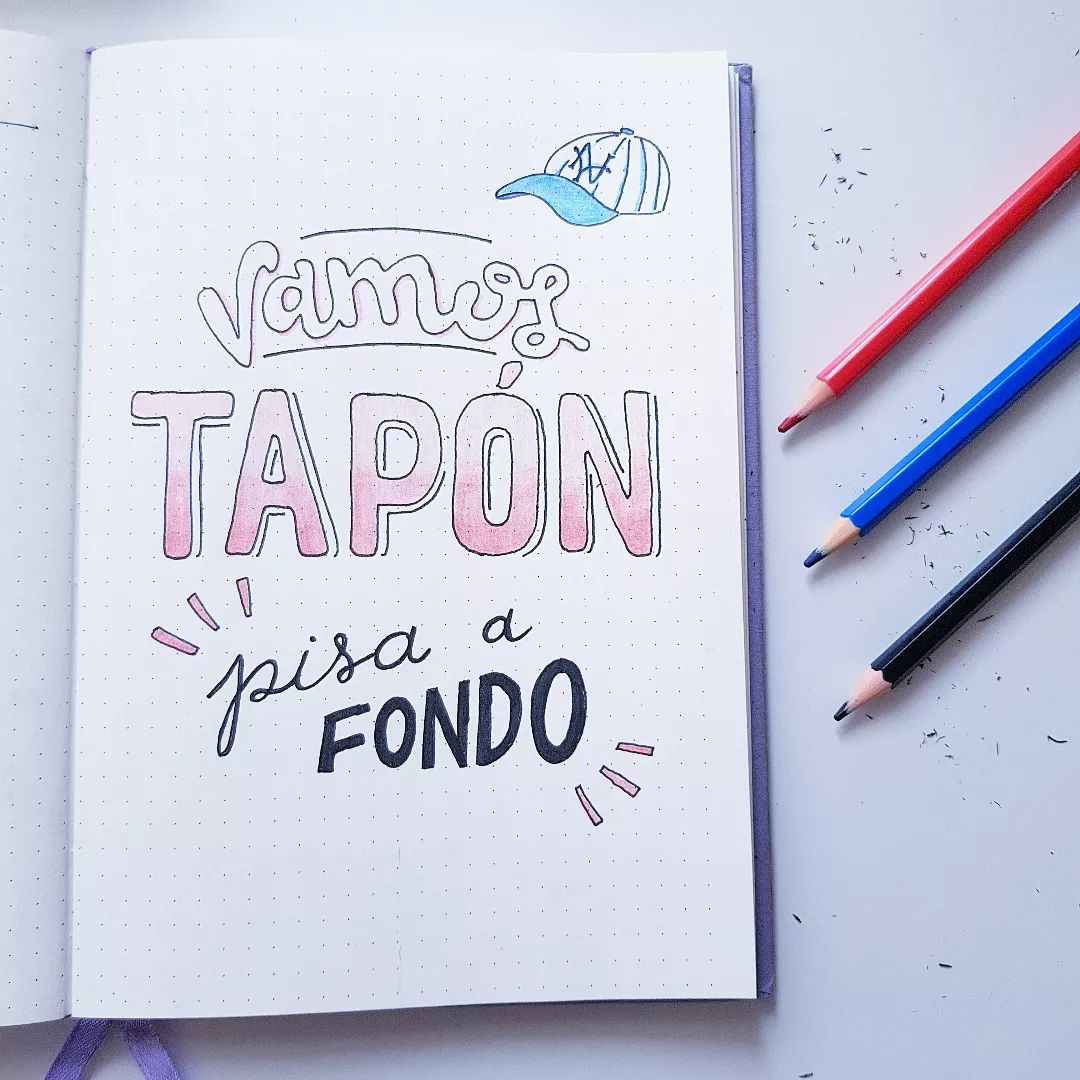 Vamos
TAPÓN
pisa a
FONDO